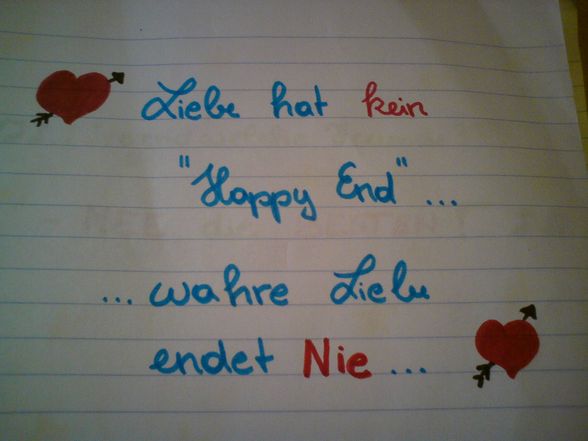 Liebe hat kein
"Happy End"...
...wahre Liebe
endet Nie...